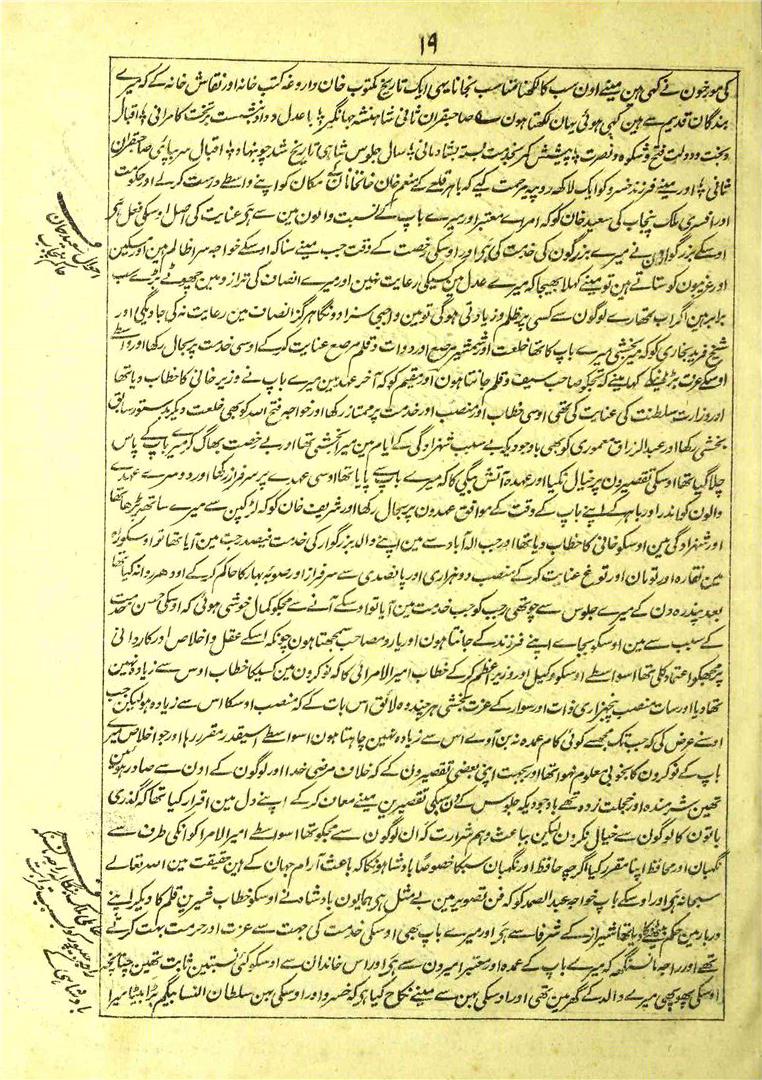 ۱۹
کی مورخون نے کہی ہین مینے اون سب کا لکھنا مناسب نجانا یہی ایک تاریخ مکتوب خان داروغہ کتب خانہ اور نقاش خانہ کے کہ میرے
بندگان قدیم سے ہین کہی ہوئی یہان لکھتا ہون صاحبقران ثانی شاہنشہ جہانگیر باعدل و داد نشست بر تخت کامرانی اقبال
و بخت و دولت فتح و شکوہ و نصرت پیشش کمر بخدمت بستہ بشادمانی سال جلوس شاہی تاریخ شد چو بنہاد اقبال سر بپائی صاحبقران
ثانی اور مینے فرزند خسرو کو ایک لاکھ روپیہ مرحمت کیے کہ باہر قلعے کے منعم خان خانخانان کے مکان کو اپنے واسطے درست کرلے اور حکومت
اور افسری ملک پنجاب کی سعید خان کو کہ امرائے معتبر اور میرے باپ کے نسبت والون مین سے ہی عنایت کی اصل اوسکی مغل ہی
اوسکے بزرگ اون نے میرے بزرگون کی خدمت کی ہی اور اوسکی رخصت کے وقت جب مینے سنا کہ اوسکے خواجہ سرا ظالم ہین اور سکین
اور غریبون کو ستاتے ہین تو مینے کہلا بھیجا کہ میرے عدل مین کسیکی رعایت نہین اور میرے انصاف کی ترازو مین چھوٹے بڑے سب
برابر ہین اگر اب تمھارے لوگون سے کسی پر ظلم و زیادتی ہوگی تو مین واجبی سزا دونگا ہرگز انصاف مین رعایت نہ کی جاویگی اور
شیخ فرید بخاری کو کہ میر بخشی میرے باپ کا تھا خلعت اور شمشیر مرصع اور دوات و قلم مرصع عنایت کر کے اوسی خدمت پر بحال رکھا اور واسطے
اوسکے عزت بڑھنے کے کہا مینے کہ تجکو صاحب سیف و قلم جانتا ہون اور مقیم کو کہ آخر عہد مین میرے باپ نے وزیر خانی کا خطاب دیا تھا
اور وزارت سلطنت کی عنایت کی تھی اوسی خطاب اور منصب اور خدمت پر ممتاز رکھا اور خواجہ فتح اللہ کو بھی خلعت دیکر بدستور سابق
بخشی رکھا اور عبدالرزاق معموری کو بھی باوجودیکہ بے سبب شہزادگی کے ایام مین میرا بخشی تھا اور بے رخصت بھاگ کر میرے باپ کے پاس
چلا گیا تھا اوسکی تقصیرون پر خیال نکیا اور عہدہ آتش بیگی کا کہ میرے باپ سے پایا تھا اوسی عہدے پر سرفراز رکھا اور دوسرے عہدے
والون کو اندر اور باہر کے اپنے باپ کے وقت کے موافق عہدون پر بحال رکھا اور شریف خان کو کہ لڑکپن سے میرے ساتھ بڑھا تھا
اور شہزادگی مین اوسکو خانی کا خطاب دیا تھا اور جب الہ آباد سے مین اپنے والد بزرگوار کی خدمت فیض درجت مین آیا تھا تو اوسکو راہ
مین نقارہ اور تومان اور توغ عنایت کر کے منصب دو ہزاری اور پانصدی سے سرفراز اور صوبہ بہار کا حاکم کر کے اودھر روانہ کیا تھا
بعد پندرہ دن کے میرے جلوس سے چوتھی رجب کو جب خدمت مین آیا تو اوسکے آنے سے مجکو کمال خوشی ہوئی کہ اوسکی حسن خدمت
کے سبب سے مین اوسکو بجاے اپنے فرزند کے جانتا ہون اور یار و مصاحب سمجھتا ہون چونکہ اسکے عقل و اخلاص اور کاردانی
پر مجھکو اعتماد کلی تھا اسواسطے اوسکو وکیل اور وزیر اعظم کر کے خطاب امیرالامرائی کا کہ نوکرون مین کسیکا خطاب اوس سے زیادہ نہین
تھا دیا اور سات منصب پنجہزاری ذات اور سوار کے عزت بخشی ہر چند وہ لائق اس بات کے کہ منصب اوسکا اس سے زیادہ ہو لیکن جب
اوسنے عرض کی کہ جب تک مجھسے کوئی کام عمدہ نہ بن آوے اس سے زیادہ نہین چاہتا ہون اسواسطے اسیقدر مقرر رہا اور جو اخلاص میرے
باپ کے نوکرون کا بخوبی معلوم نہوا تھا اور بجہت اپنی بعضی تقصیرون کے کہ خلاف مرضی خدا اور لوگون کے اون سے صادر ہوئین
تھین شرمندہ اور خجلت زدہ تھے باوجودیکہ جلوس کے دن سبکی تقصیرین مینے معاف کر کے اپنے دل مین اقرار کیا تھا کہ گذری
باتون کا لوگون سے خیال نکرون لیکن بباعث وہم شرارت کہ ان لوگون سے مجکو تھا اسواسطے امیرالامرا کو انکی طرف سے
نگہبان اور محافظ اپنا مقرر کیا اگرچہ حافظ اور نگہبان سبکا خصوصاً بادشاہونکا کہ باعث آرام جہان کے ہین حقیقت مین اللہ تعالے
سبحانہ ہی اور اوسکے باپ خواجہ عبدالصمد کو کہ فن تصویر مین بے مثل ہی ہمایون بادشاہ نے اوسکو خطاب شیرین قلم کا دیکر اپنے
دربار مین حکم بیٹھنے کا دیا تھا شیراز کے شرفا سے ہی اور میرے باپ بھی اوسکی خدمت کی جہت سے عزت اور حرمت بہت کرتے
تھے اور راجہ مانسنگھ کہ میرے باپ کے عمدہ اور معتبر امیرون سے ہی اور اس خاندان سے اوسکو کئی نسبتین ثابت تھین چنانچہ
اوسکی پھوپھی میرے والد کے گھر مین تھی اور اوسکی بہن سے مینے نکاح کیا ہی کہ خسرو اور اوسکی بہن سلطان النسا بیگم بڑا بیٹا میرا